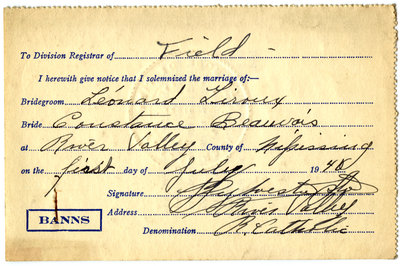 To Division Registrar of Field -
I herewith give notice that I solemnized the marriage of:—
Bridegroom Léonard Giroux
Bride Constance Beauvais
at River Valley County of Nipissing
on the first day of July 194
Signature
BANNS
Address River Valley
Denomination R. Catholic